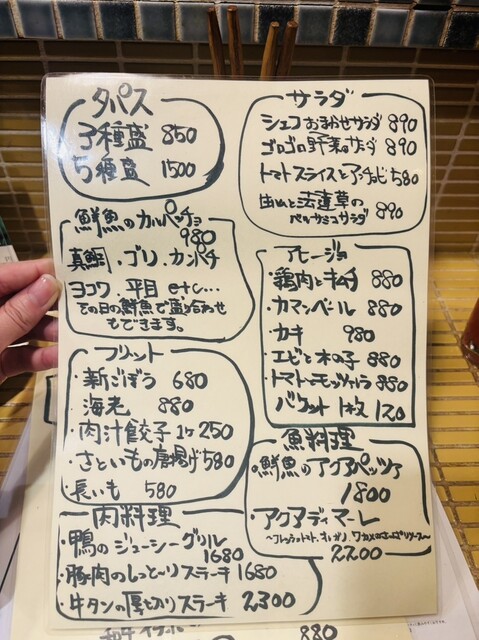 タパス
3種盛 850
5種盛 1500
鮮魚のカルパッチョ
980
真鯛．ゴリ．カンパチ
ヨコワ．平目 etc...
その日の鮮魚で盛り合わせ
もできます。
フリット
・新ごぼう 680
・海老 880
・肉汁餃子 1ケ 250
・さといもの唐揚げ 580
・長いも 580
肉料理
・鴨のジューシーグリル
1680
・豚肉のしっと〜りステーキ 1680
・牛タンの厚切りステーキ 2300
サラダ
シェフおまかせサラダ 890
ゴロゴロ野菜のサラダ 890
トマトスライスとアンチョビ 580
法蓮草の
バルサミコサラダ 890
アヒージョ
・鶏肉とキムチ 880
・カマンベール 880
・カキ 980
・エビと木の子 880
・トマトとモッツァレラ 880
バケット1枚 120
魚料理
・鮮魚のアクアパッツァ
1800
・アクアディマーレ
2200
880